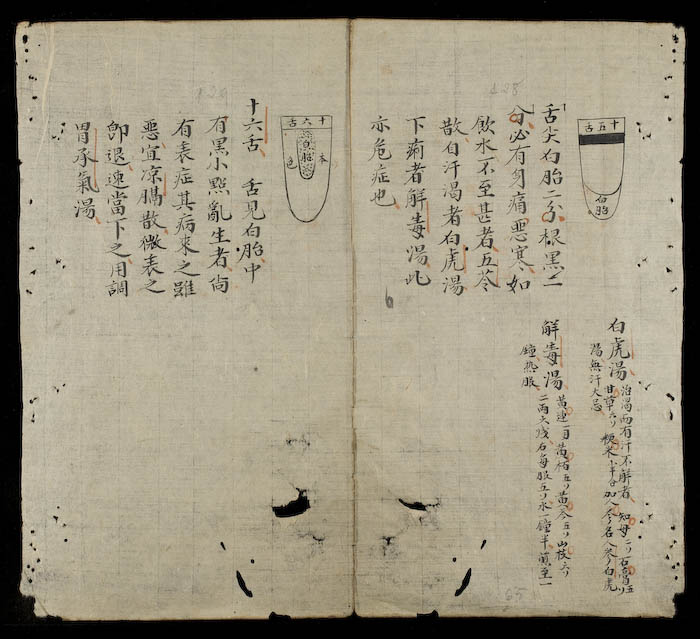 十五舌
白胎
舌尖白胎二分根黑二
分必有身痛惡寒如
飲水不至甚者五苓
散自汗渴者白虎湯
下痢者解毒湯此
亦危症也
白虎湯 治渴而有汗不解者 知母二リ 石膏五リ
甘草六リ 粳米小半合 加人參名人參白虎
湯無汗大忌
解毒湯 黃連一 黃栢五リ 黃芩五リ 山枝六リ
二兩 右每服五リ水一鐘半煎至一
鐘熱服
十六舌
本色
十六舌 舌見白胎中
有黑小㸃亂生者尚
有表症其病來之雖
惡宜凉膈散微表之
卽退速當下之用調
胃承氣湯